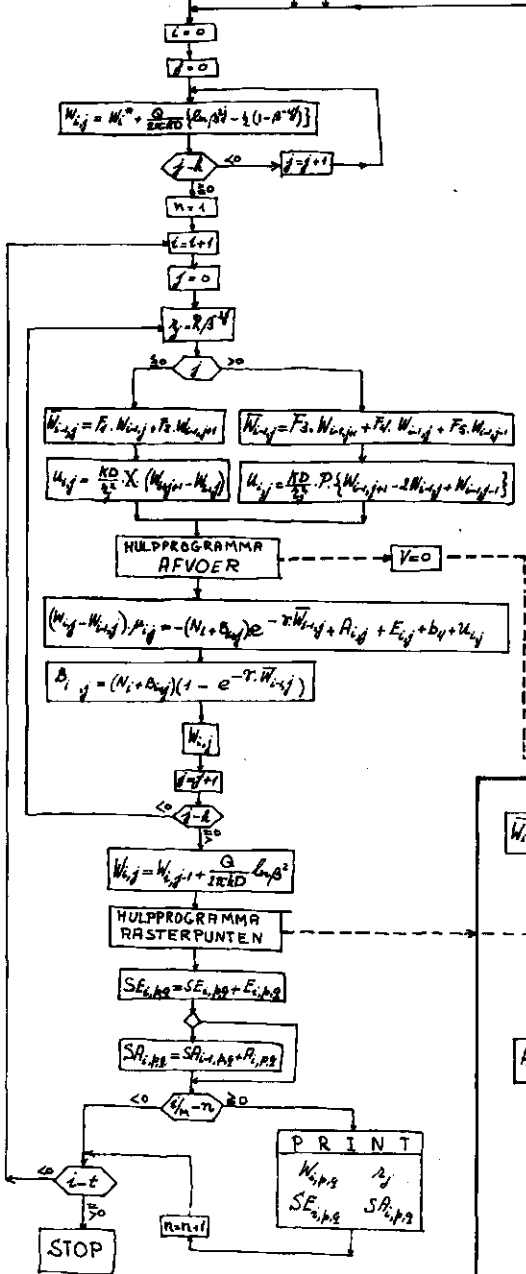 i=0
j=0
W_{i,j} = W_i^* + Q/2πkD {ln β^{2j} - ½ (1-β^{-4j})}
j-k
<0
j=j+1
≧0
n=1
i=i+1
j=0
r_j=Rβ^{-2j}
≦0
j
>0
W̄_{i-1,j} = F_1.W_{i-1,j} + F_2.W_{i-1,j+1}
W̄_{i-1,j} = F_3.W_{i-1,j+1} + F_4.W_{i-1,j} + F_5.W_{i-1,j-1}
HULPPROGRAMMA
AFVOER
V=0
(W_{i,j} - W_{i-1,j}).μ_{i,j} = -(N_i+B_{i-1,j})e^{-γ.W̄_{i-1,j}} + A_{i,j} + E_{i,j} + b_{ij} + u_{i,j}
B_{i,j} = (N_i+B_{i-1,j})(1 - e^{-γ.W̄_{i-1,j}})
W_{i,j}
j=j+1
<0
j-k
≧0
W_{i,j} = W_{i,j-1} + Q/2πkD ln β²
HULPPROGRAMMA
RASTERPUNTEN
SE_{i,p,q} = SE_{i,p,q} + E_{i,p,q}
SA_{i,p,q} = SA_{i-1,p,q} + A_{i,p,q}
<0
i/m - n
≧0
PRINT
W_{i,p,q} r_j
SE_{i,p,q} SA_{i,p,q}
<0
i-t
≧0
n=n+1
STOP